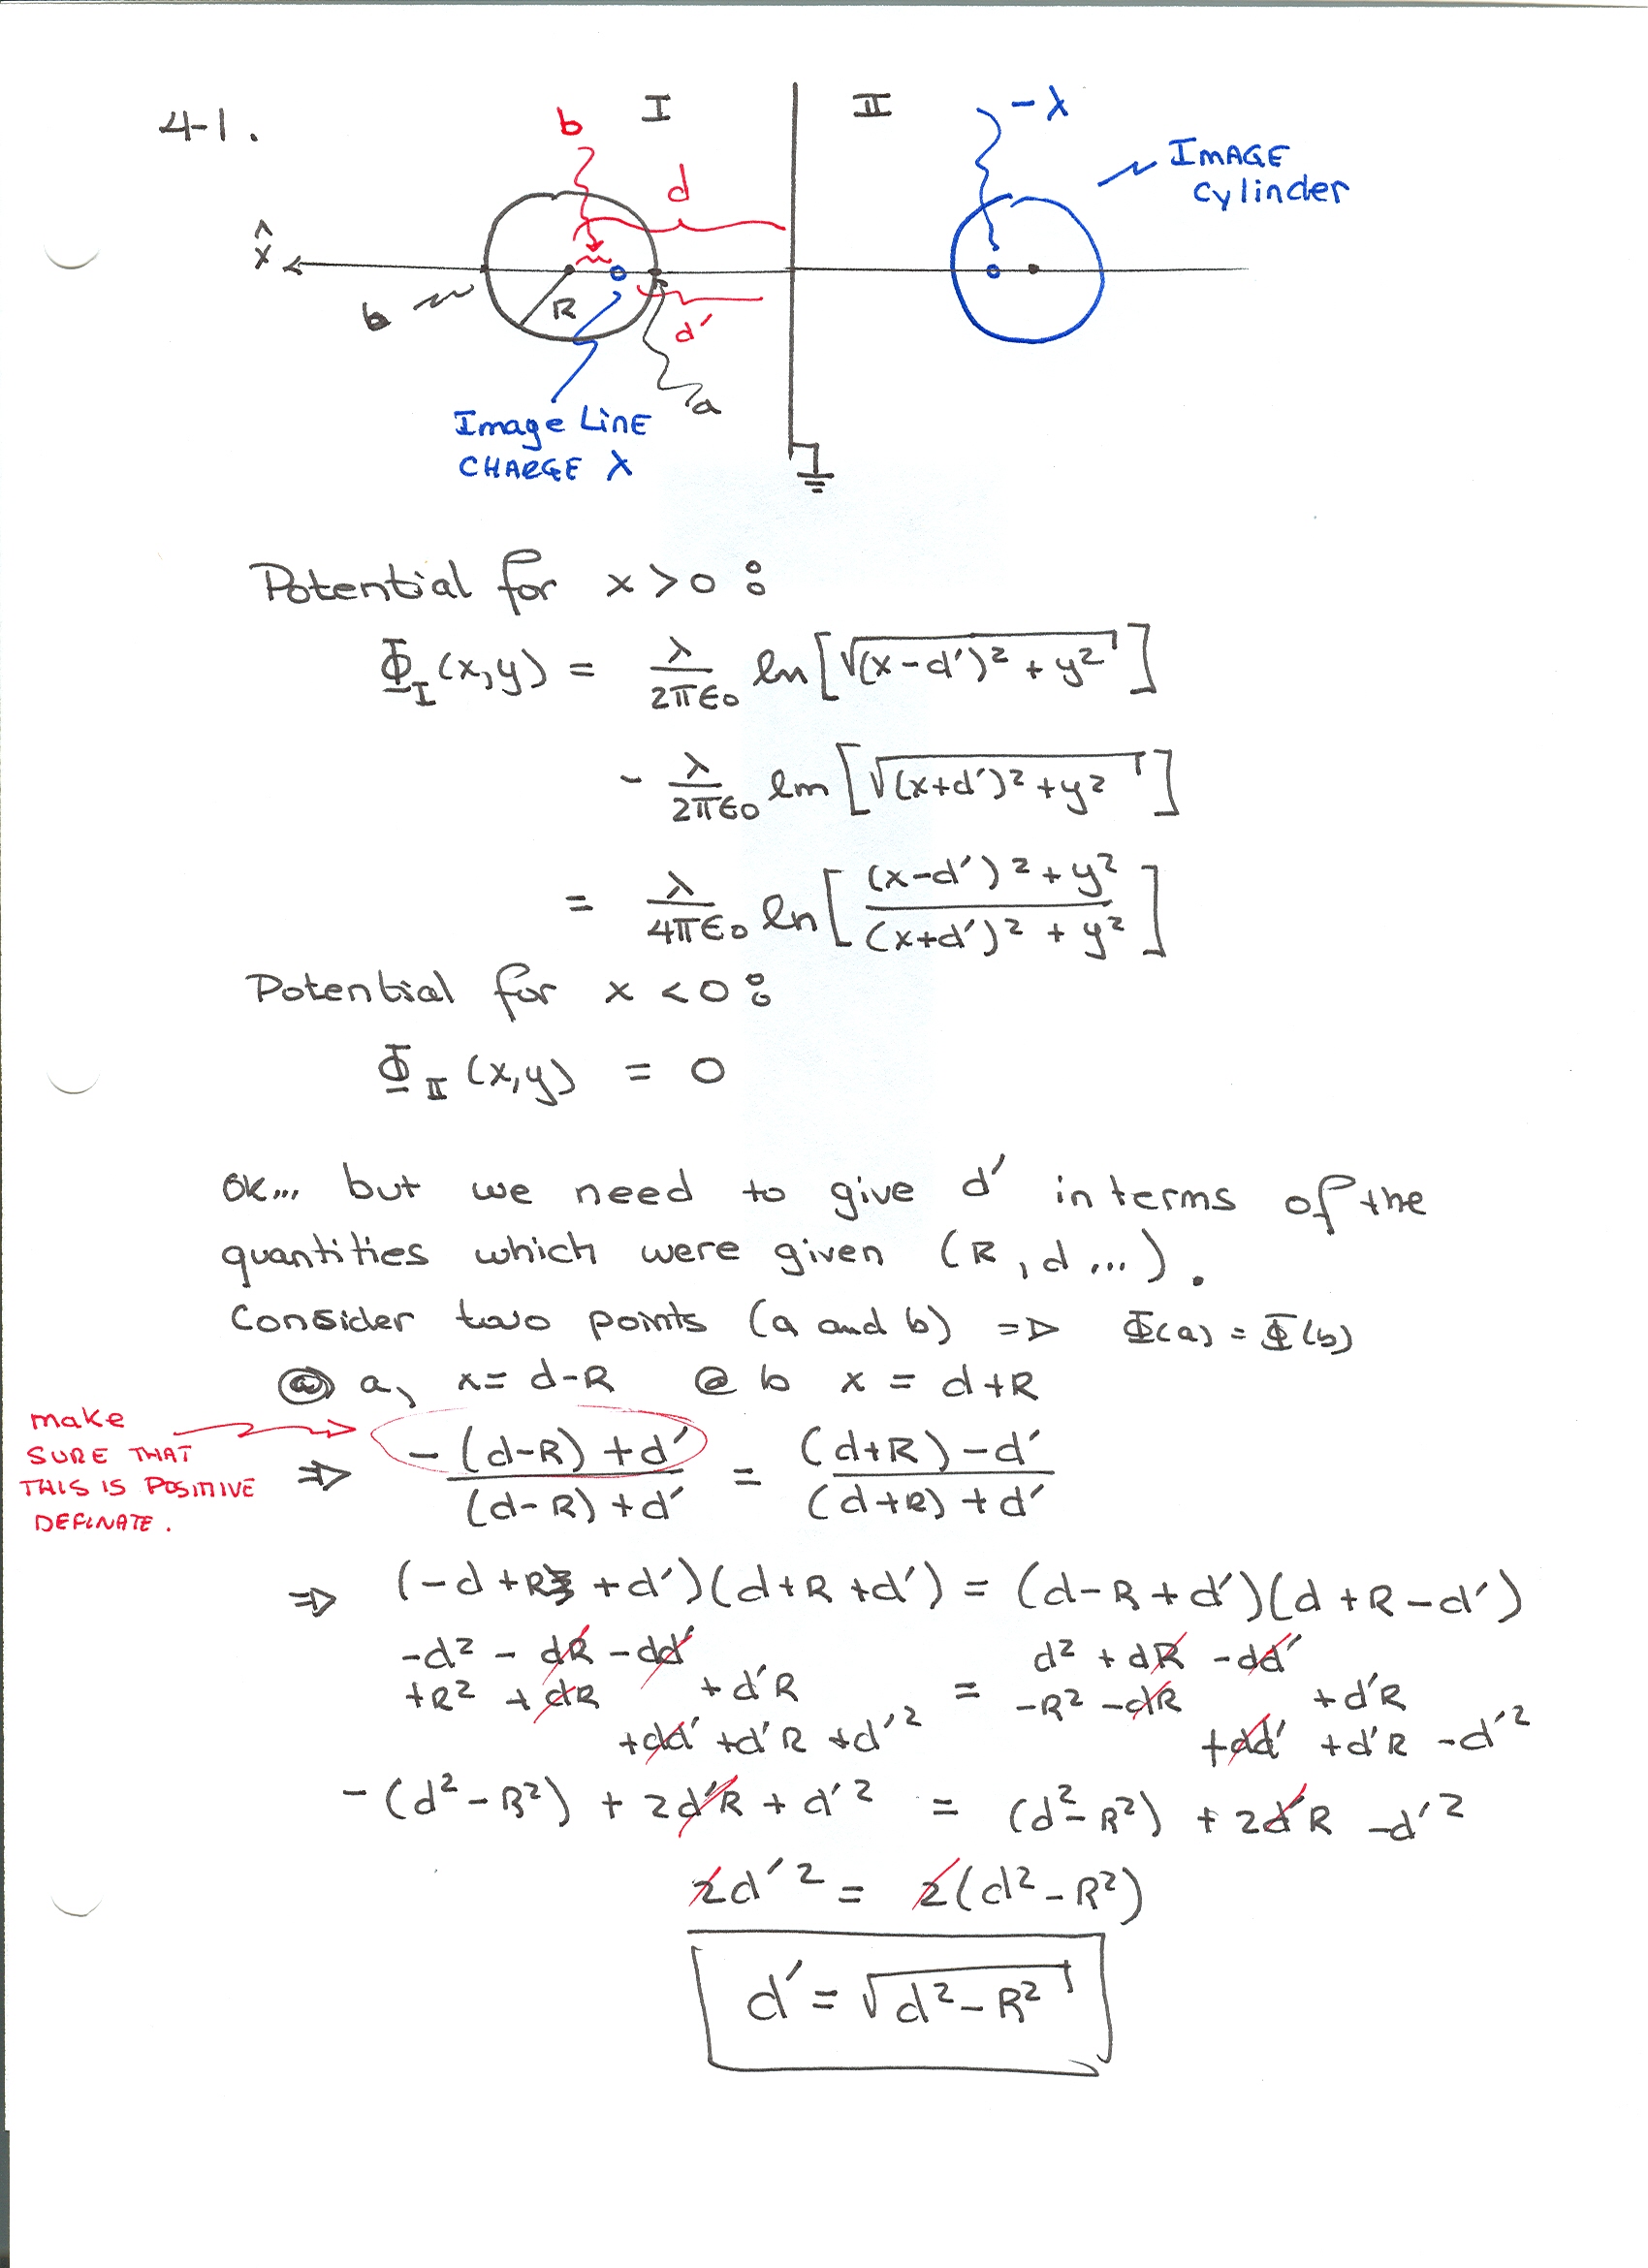 4-1.
I
II
b
d
-λ
IMAGE
Cylinder
x̂
b
R
d′
a
Image LinE
CHARGE λ
Potential for x>0:
Φ_I(x,y) = λ/2πϵ0 ln[√(x-d′)²+y²]
- λ/2πϵ0 ln[√(x+d′)²+y²]
= λ/4πϵ0 ln[(x-d′)²+y² / (x+d′)²+y²]
Potential for x<0:
Φ_II(x,y) = 0
OK... but we need to give d′ in terms of the
quantities which were given (R,d...).
Consider two points (a and b) => Φ(a)=Φ(b)
@ a, x= d-R @ b x = d+R
make
SURE THAT
THIS IS POSITIVE
DEFINATE.
=> -(d-R)+d′ / (d-R)+d′ = (d+R)-d′ / (d+R)+d′
=> (-d+R+d′)(d+R+d′) = (d-R+d′)(d+R-d′)
-d² - dR - dd′ d² + dR - dd′
+R² + dR + d′R = -R² - dR + d′R
+dd′ + d′R + d′² +dd′ + d′R - d′²
-(d²-R²) + 2d′R + d′² = (d²-R²) + 2d′R - d′²
2d′² = 2(d²-R²)
d′ = √d²-R²